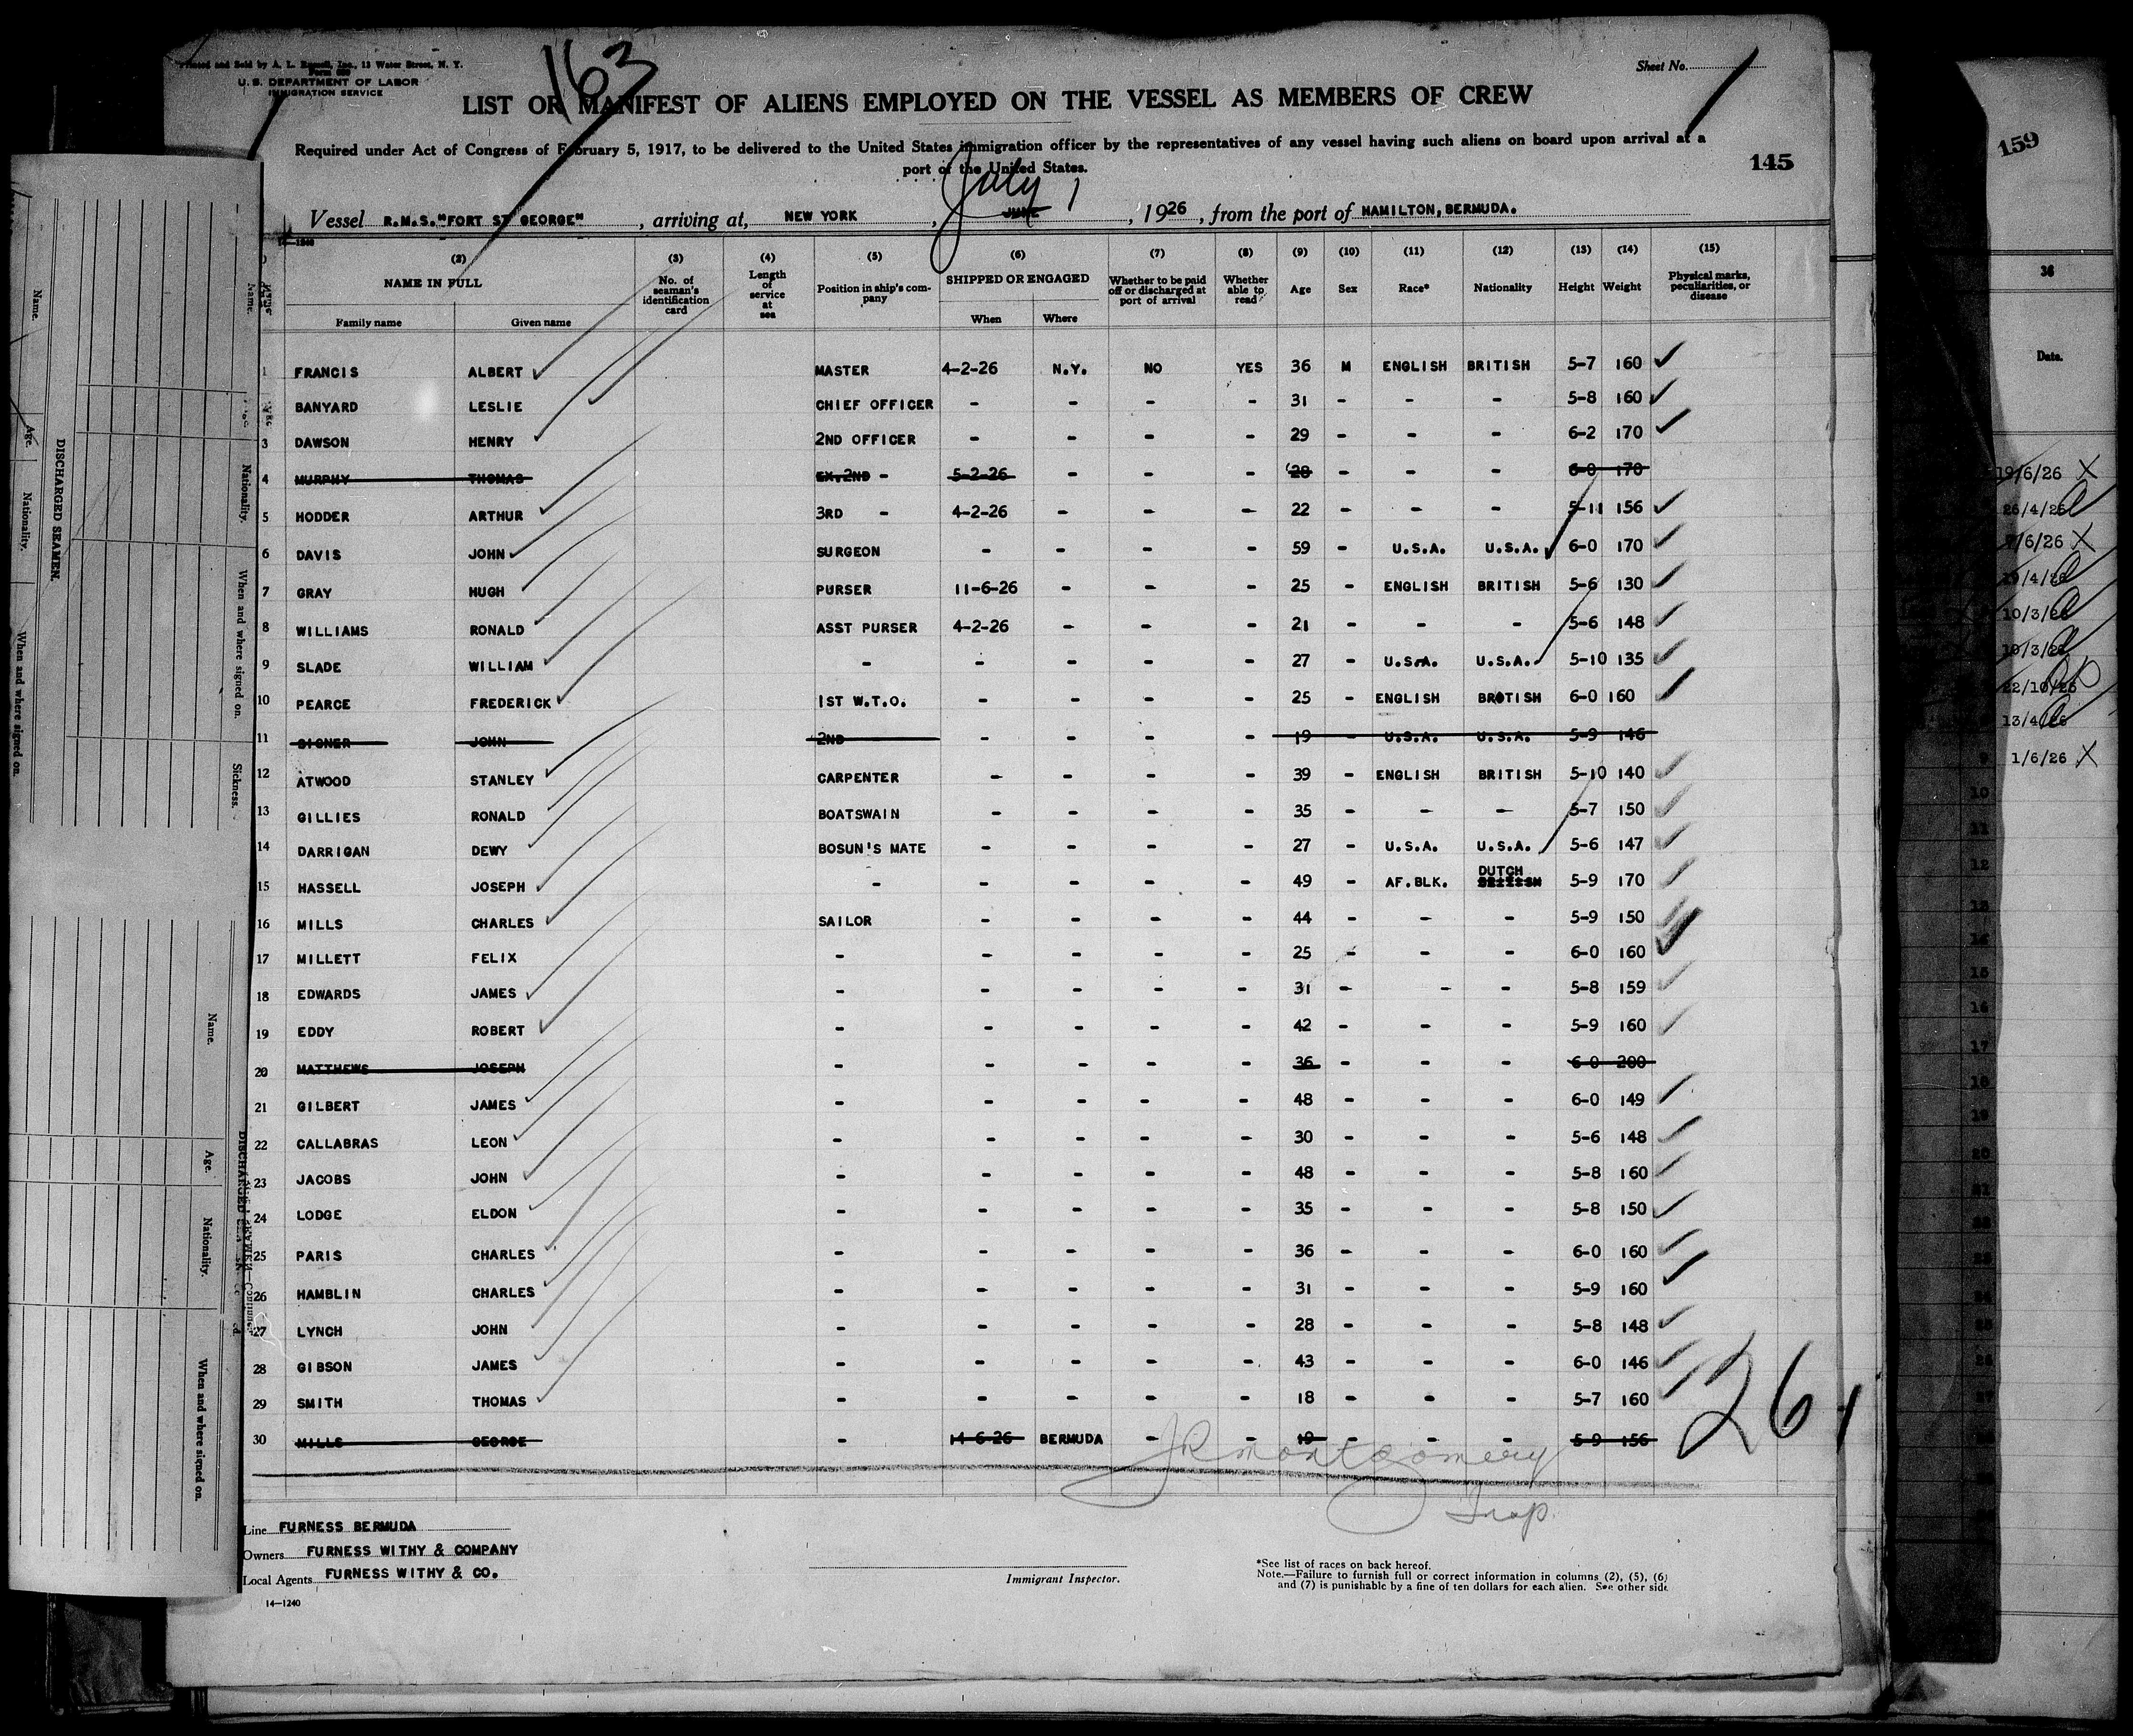 Printed and Sold by A. L. Russell, Inc., 13 Water Street, N. Y.
U. S. DEPARTMENT OF LABOR
IMMIGRATION SERVICE
163
Sheet No.
1
LIST OR MANIFEST OF ALIENS EMPLOYED ON THE VESSEL AS MEMBERS OF CREW
Required under Act of Congress of February 5, 1917, to be delivered to the United States immigration officer by the representatives of any vessel having such aliens on board upon arrival at a
port of the United States.
145
July 1
Vessel R.M.S."FORT ST GEORGE" , arriving at, NEW YORK , JUNE , 1926 , from the port of HAMILTON, BERMUDA.
14-1240
(2) (3) (4) (5) (6) (7) (8) (9) (10) (11) (12) (13) (14) (15)
NAME IN FULL No. of seaman's identification card Length of service at sea Position in ship's company SHIPPED OR ENGAGED Whether to be paid off or discharged at port of arrival Whether able to read Age Sex Race* Nationality Height Weight Physical marks, peculiarities, or disease
Family name Given name When Where
1 FRANCIS ALBERT MASTER 4-2-26 N.Y. NO YES 36 M ENGLISH BRITISH 5-7 160
BANYARD LESLIE CHIEF OFFICER - - - - 31 - - - 5-8 160
3 DAWSON HENRY 2ND OFFICER - - - - 29 - - - 6-2 170
4 MURPHY THOMAS EX.2ND - 5-2-26 - - - 28 - - - 6-0 170
5 HODDER ARTHUR 3RD - 4-2-26 - - - 22 - - - 5-11 156
6 DAVIS JOHN SURGEON - - - - 59 - U.S.A. U.S.A. 6-0 170
7 GRAY HUGH PURSER 11-6-26 - - - 25 - ENGLISH BRITISH 5-6 130
8 WILLIAMS RONALD ASST PURSER 4-2-26 - - - 21 - - - 5-6 148
9 SLADE WILLIAM - - - - - 27 - U.S.A. U.S.A. 5-10 135
10 PEARCE FREDERICK 1ST W.T.O. - - - - 25 - ENGLISH BRITISH 6-0 160
11 SIGNER JOHN 2ND - - - - 19 - U.S.A. U.S.A. 5-9 146
12 ATWOOD STANLEY CARPENTER - - - - 39 - ENGLISH BRITISH 5-10 140
13 GILLIES RONALD BOATSWAIN - - - - 35 - - - 5-7 150
14 DARRIGAN DEWY BOSUN'S MATE - - - - 27 - U.S.A. U.S.A. 5-6 147
DUTCH
15 HASSELL JOSEPH - - - - - 49 - AF.BLK. BRITISH 5-9 170
16 MILLS CHARLES SAILOR - - - - 44 - - - 5-9 150
17 MILLETT FELIX - - - - - 25 - - - 6-0 160
18 EDWARDS JAMES - - - - - 31 - - - 5-8 159
19 EDDY ROBERT - - - - - 42 - - - 5-9 160
20 MATTHEWS JOSEPH - - - - - 36 - - - 6-0 200
21 GILBERT JAMES - - - - - 48 - - - 6-0 149
22 CALLABRAS LEON - - - - - 30 - - - 5-6 148
23 JACOBS JOHN - - - - - 48 - - - 5-8 160
24 LODGE ELDON - - - - - 35 - - - 5-8 150
25 PARIS CHARLES - - - - - 36 - - - 6-0 160
26 HAMBLIN CHARLES - - - - - 31 - - - 5-9 160
27 LYNCH JOHN - - - - - 28 - - - 5-8 148
28 GIBSON JAMES - - - - - 43 - - - 6-0 146
29 SMITH THOMAS - - - - - 18 - - - 5-7 160
30 MILLS GEORGE - 14-6-26 BERMUDA - - 19 - - - 5-9 156
261
JR Montgomery
Insp.
Line FURNESS BERMUDA
Owners FURNESS WITHY & COMPANY
Local Agents FURNESS WITHY & CO.
14-1240
Immigrant Inspector.
*See list of races on back hereof.
Note.—Failure to furnish full or correct information in columns (2), (5), (6)
and (7) is punishable by a fine of ten dollars for each alien. See other side
Name.
Age.
Nationality.
When and where signed on.
DISCHARGED SEAMEN.
Name.
Nationality.
When and where signed on.
Sickness.
Name.
Age.
Nationality.
When and where signed on.
159
36
Date.
19/6/26 X
26/4/26
/6/26 X
19/4/26
10/3/26
10/3/26
22/10/26
13/4/26
9 1/6/26 X
10
11
12
13
15
16
17
18
19
20